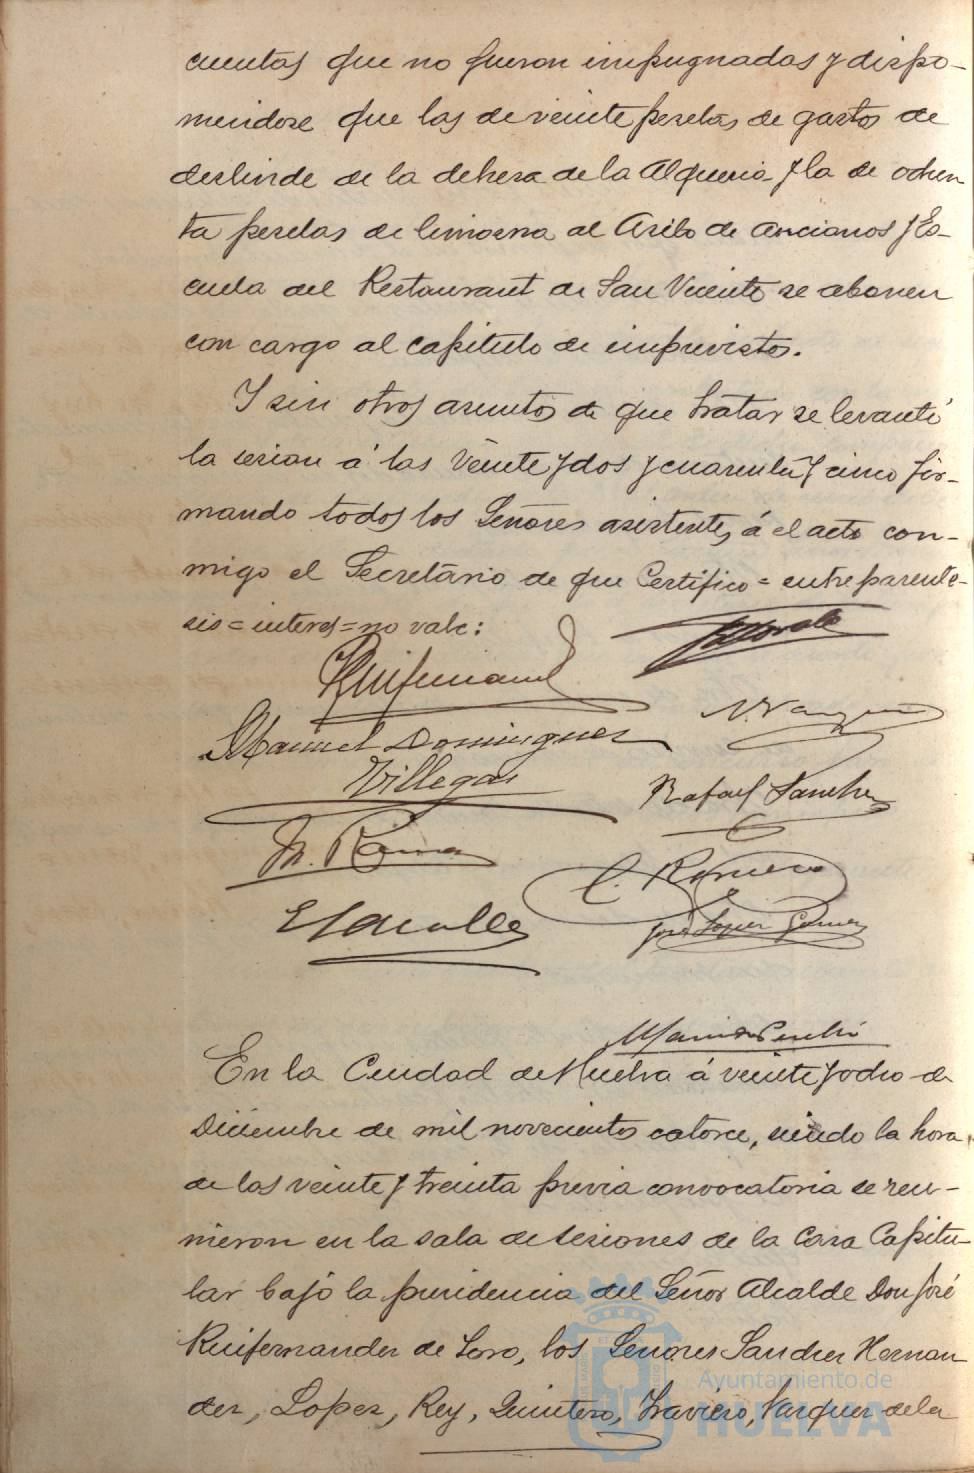 cuentas que no fueron impugnadas y dispo-
niendose que las de veinte pesetas de gastos de
deslinde de la dehesa de la Alqueria y la de ochen
ta pesetas de limosna al Asilo de Ancianos y Es-
cuela del Restaurant de San Vicente se abonen
con cargo al capitulo de imprevistos.
Y sin otros asuntos de que tratar se levantó
la sesion á las veinte y dos y cuarenta y cinco fir-
mando todos los Señores asistentes á el acto con-
migo el Secretario de que Certifico = entre parente-
sis = interes = no vale:
Ruifernand
Manuel Dominguez
N. Vazquez
Villegas
Rafael Sanchez
M. Roma
C. Romero
E Lacalle
José Lopez Gomez
En la Ciudad de Huelva á veinte y ocho de
Diciembre de mil novecientos catorce, siendo la hora
de las veinte y treinta previa convocatoria se reu-
nieron en la sala de sesiones de la Casa Capitu-
lar bajo la presidencia del Señor Alcalde Don José
Ruifernandez de Soro, los Señores Sanchez Hernan
dez, Lopez, Rey, Quintero, Traviero, Vazquez de la
Ayuntamiento de
HUELVA